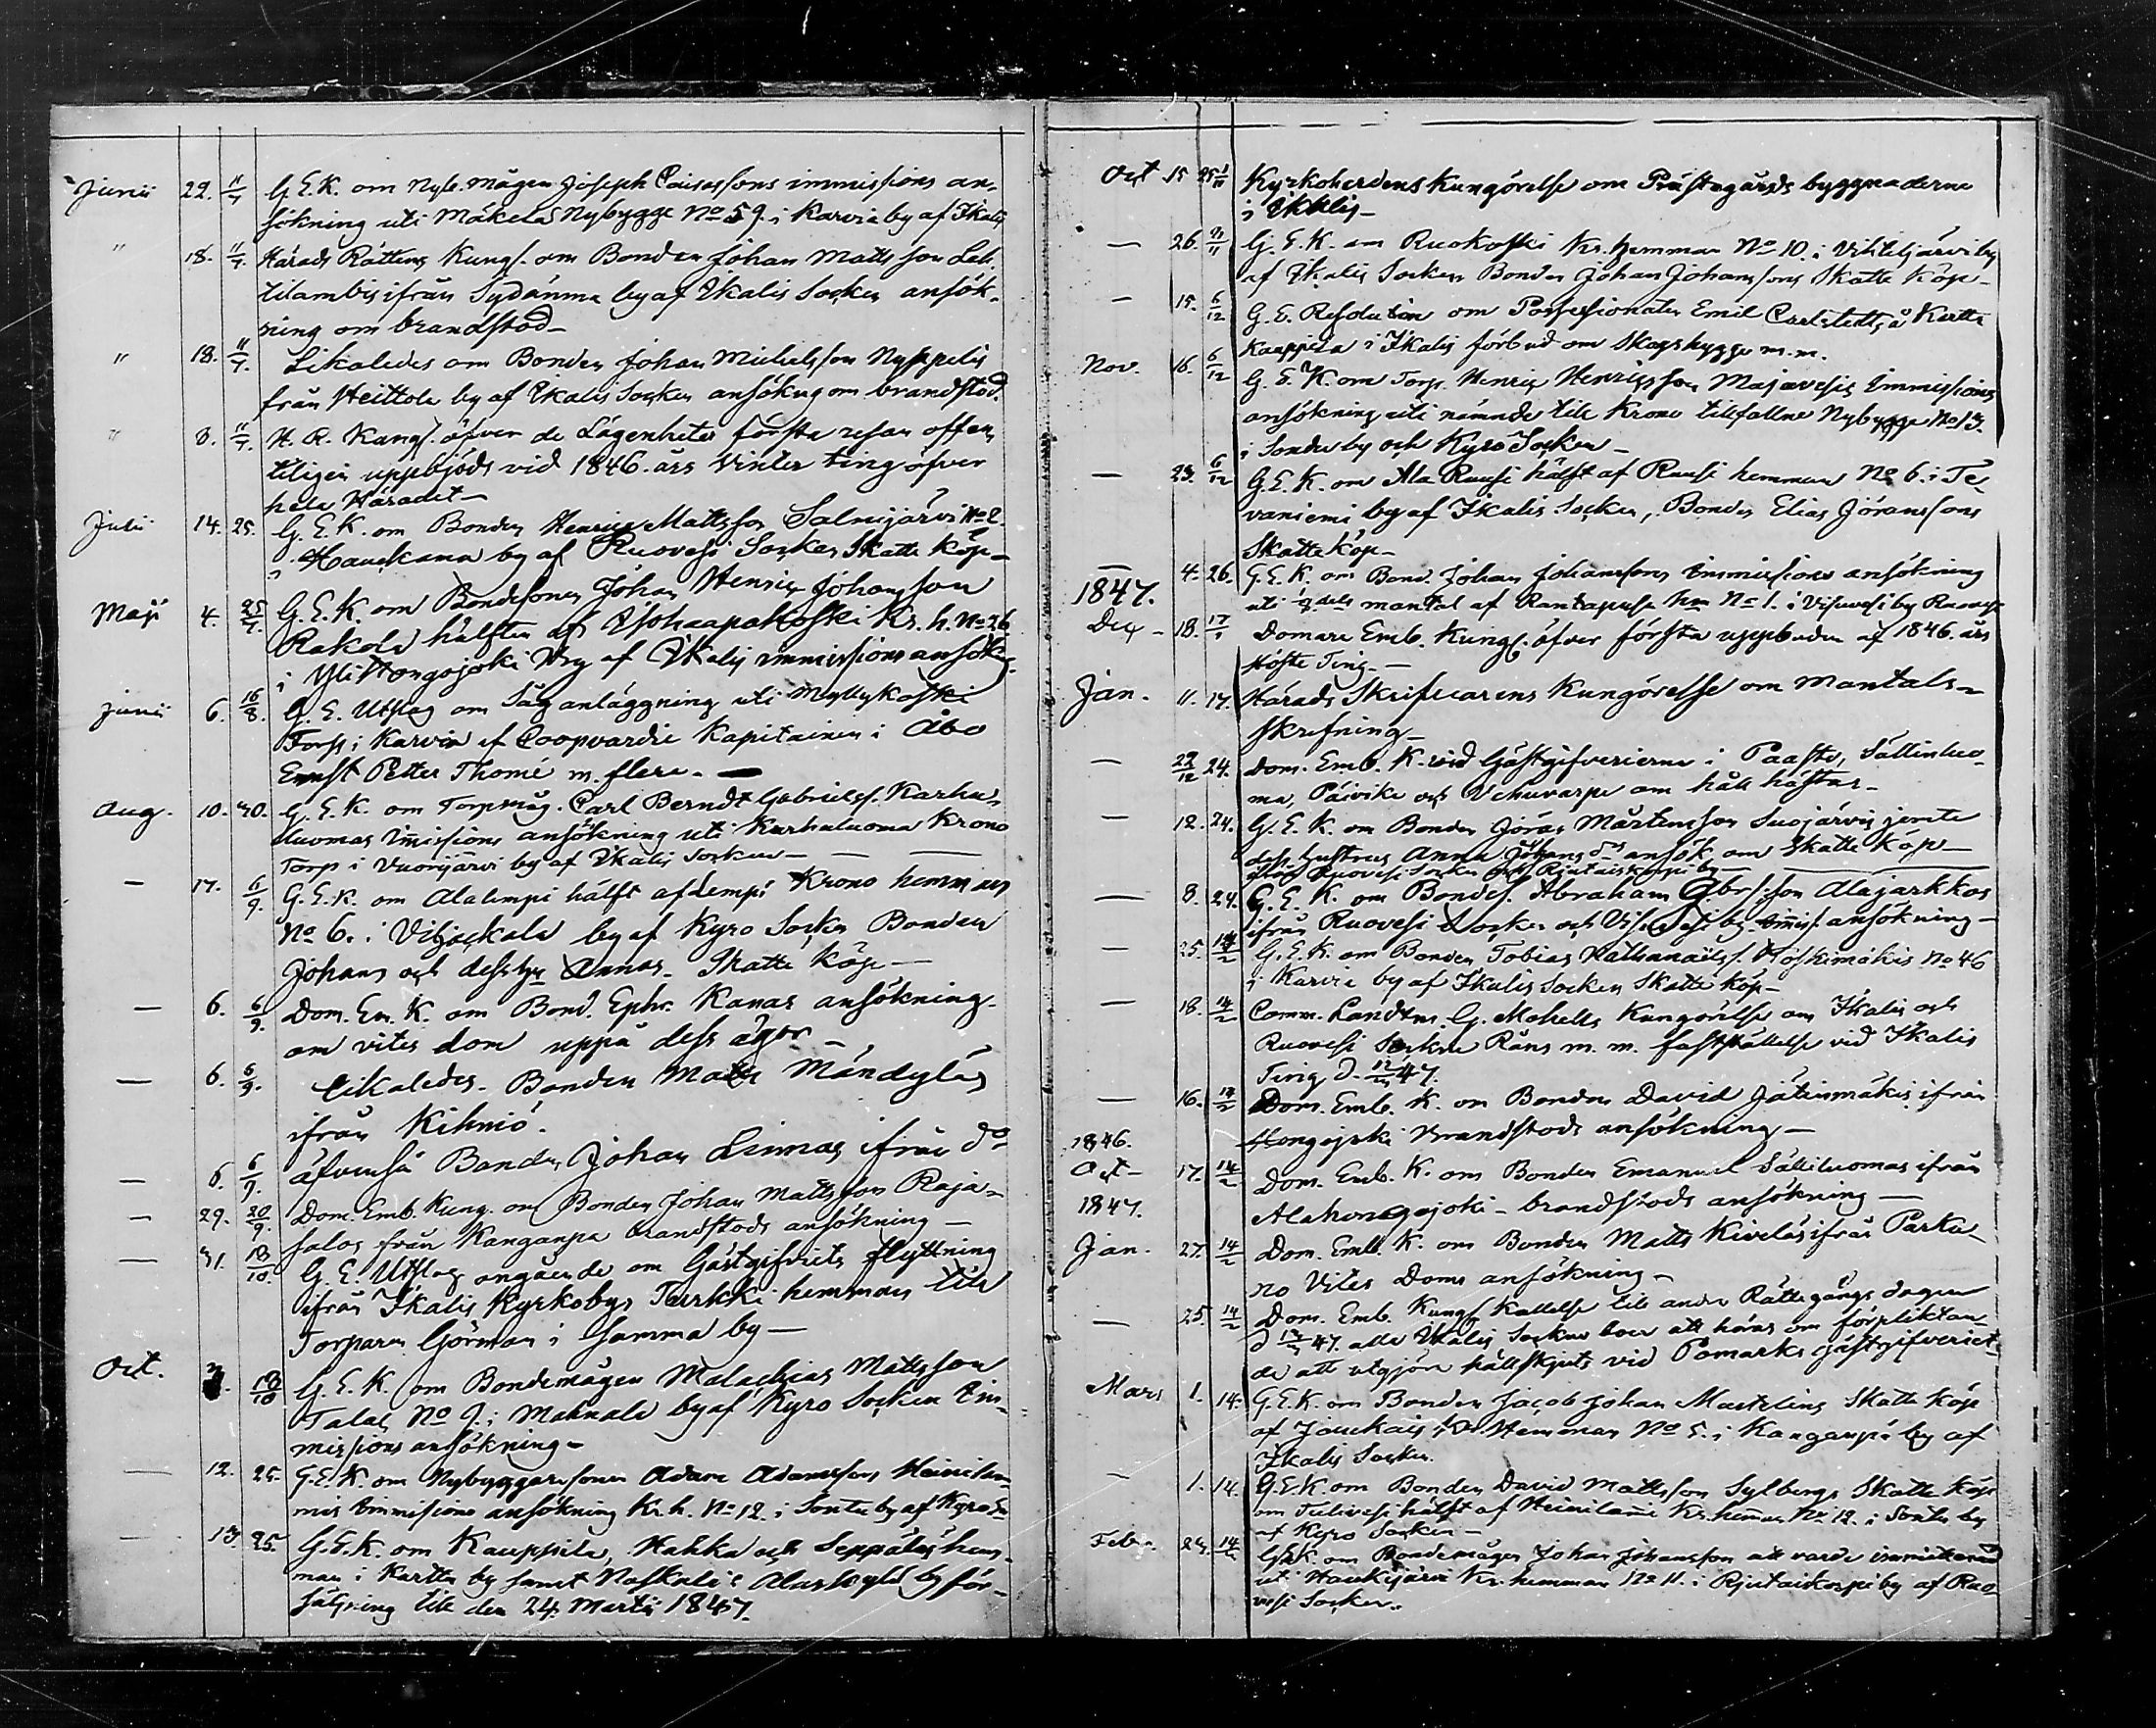 Junii 22. 11/7 G.E.K. om Nyb. mågen Joseph Caisassons immissions an-
sökning uti Mäkelä Nybygge No 59. i Karvia by af Ikalis
" 18. 11/7. Härads Rättens Kungs. om Bonden Johan Matts son Leh
tilambis ifrån Sydänma by af Ikalis Socken ansök-
ning om brandstod—
" 18. 11/7. Likaledes om Bonden Johan Michelsson Nyppelis
från Heittola by af Ikalis Socken ansökng om brandstod.
" 8. 11/7. H. R. Kungs. öfver de Lägenheter första resan offen-
teligen uppbjöds vid 1846. års Vinter ting öfver
hela Häradet—
Julii 14. 25. G.E.K. om Bonden Henric Mattsson Salmijärvi No 2.
i Hauckama by af Ruovesi Socken Skatte köp—
Maji 4. 25/7. G.E.K. om Bondesonen Johan Henric Johansson
Rakola hälften af Kr. h. No 26
i Yli Hongojoki by af Ikalis immissions ansökng.
Junii 6. 16/8. G.E. Utslag om Såg anläggning uti Myllykoski
Forss i Karvia af Coopvardie Kapitainen i Åbo
Ernst Petter Thomé m. flera. —
Aug. 10. 30. G.E.K. om Torpmåg. Carl Berndt Gabrielss. Karhu-
luomas Immissions ansökning uti Karhuluoma Krono
Torp i Vuorijärvi by af Ikalis Socken— — —
— 17. 6/9. G.E.K. om Alalempi hälft af Lempi Krono hemman
No 6. i Viljackala by af Kyro Socken Bonden
Johans och dess hu Annas. Skatte köp—
— 6. 6/9. Dom. Em. K. om Bond. Ephr. Kanas ansökning
om vites dom uppå dess ägor—
— 6. 6/9. Likaledes. Bonden Matts Mändyläs
ifrån Kihniö.
— 6. 6/9. äfvenså Bonden Johan Linnas ifrån do
— 29. 20/9. Dom. Emb. Kung. om Bonden Johan Mattsson Raja-
salos från Kanganpä brandstods ansökning—
— 31. 13/10. G.E. Utslag angående om Gästgifveriets flyttning
ifrån Ikalis Kyrkobys Turkki hemman till
Torparen Görman i samma by—
Oct. 3. 13/10 G.E.K. om Bondemågen Malachias Mattsson
Talas No 9. i Mahnala by af Kyro Socken Im-
missions ansökning—
— 12. 25. G.E.K. om Nybyggaresonen Adam Adamssons Heinilam-
mis Immissions ansökning Kr. h. No 12. i by af Kyro
— 13. 25. G.E.K. om Kauppila, Hakka och Seppälä hem-
man i Kartta by samt Naskali i Alaskylä by för-
säljning till den 24 Martii 1847.
Oct 15 Kyrkoherdens Kungörelse om Prästegårds byggnaderne
i Ikalis—
— 26. 11/11 G.E.K. om Ruokoski Kr. hemman No 10. i Vihteljärvi by
af Ikalis Socken Bonden Johan Johanssons Skatte köp—
— 15. 6/12 G.E. Resolution om Possessionaten Emil Carlstedts å Kartta
Kauppila i Ikalis förbud om Skogshygge m.m.
Nov. 16. 6/12 G.E.K. om Torp. Henric Henricsson Majavesis Immissions
ansökning uti nämnde till Krono tillfallne Nybygge No 13.
i by och Kyro Socken—
— 23. 6/12 G.E.K. om Ala Ruusi hälft af Ruusi hemman No 6. i Te-
vaniemi by af Ikalis Socken, Bonden Elias Jöranssons
Skatte köp—
— 4. 26. G.E.K. om Bond. Johan Johanssons Immissions ansökning
uti dels mantal af Rantapusa hm No 1. i Visuvesi by Ruovesi
1847.
Dec — 18. 17/1 Domare Emb. Kungs. öfver första uppbuden af 1846. års
Höste Ting.—
Jan. 11. 17. Härads Skrifvarens Kungörelse om Mantals-
skrifning—
— 22/12 24. Dom. Emb. K. vid Gästgifverierne i Paasto, Sättiluo-
ma, Päivike och Vehuvarpe om håll hästar—
— 12. 24. G.E.K. om Bonden Jöran Mårtensson Suojärvis jemte
dess hustrus Anna Johans dr ansök. om Skatte köp—
Ruovesi Socken och by—
— 8. 24. G.E.K. om Bondes. Abraham Gbrs:son Alajarkkas
ifrån Ruovesi Socken och Visuvesi by Immiss. ansökning—
— 25. 14/2 G.E.K. om Bonden Tobias Nathanaelss. No 46
i Karvia by af Ikalis Socken Skatte köp—
— 18. 14/2 Comm. Landtm. G. Mohells Kungörelse om Ikalis och
Ruovesi Socknars Rårs m. m. fastställelse vid Ikalis
Ting d. 47.
— 16. 14/2 Dom. Emb. K. om Bonden David Jätinmäkis ifrån
Hongojoki brandstods ansökning—
1846.
Oct— 17. 14/2 Dom. Emb. K. om Bonden Emanuel Sättiluomas ifrån
Alahongojoki — brandstods ansökning—
1847.
Jan. 27. 14/2 Dom. Emb. K. om Bonden Matts Kiveläs ifrån Parka-
no Vites Doms ansökning—
— 25. 14/2 Dom. Emb. Kungs. Kallelse till andra Rättegångs dagen
d 47. alla Ikalis Socknes boer att höras om förpliktan-
de att utgöra hållskjuts vid Pomarks gästgifveriet.
Mars 1. 14. G.E.K. om Bonden Jacob Johan Martelins Skatte köp
af Jouckais Kr Hemman No 5. i Kanganpä by af
Ikalis Socken.
— 1. 14. G.E.K. om Bonden David Mattsson Sylbergs Skatte köp
om hälft af Heinilami Kr. heman No 12. i by
af Kyro Socken—
Febr. 24. G.E.K. om Bondemågen Johan Johansson att varda immitterad
uti Haukijärvi Kr. hemman No 11. i by af Ruo-
vesi Socken.